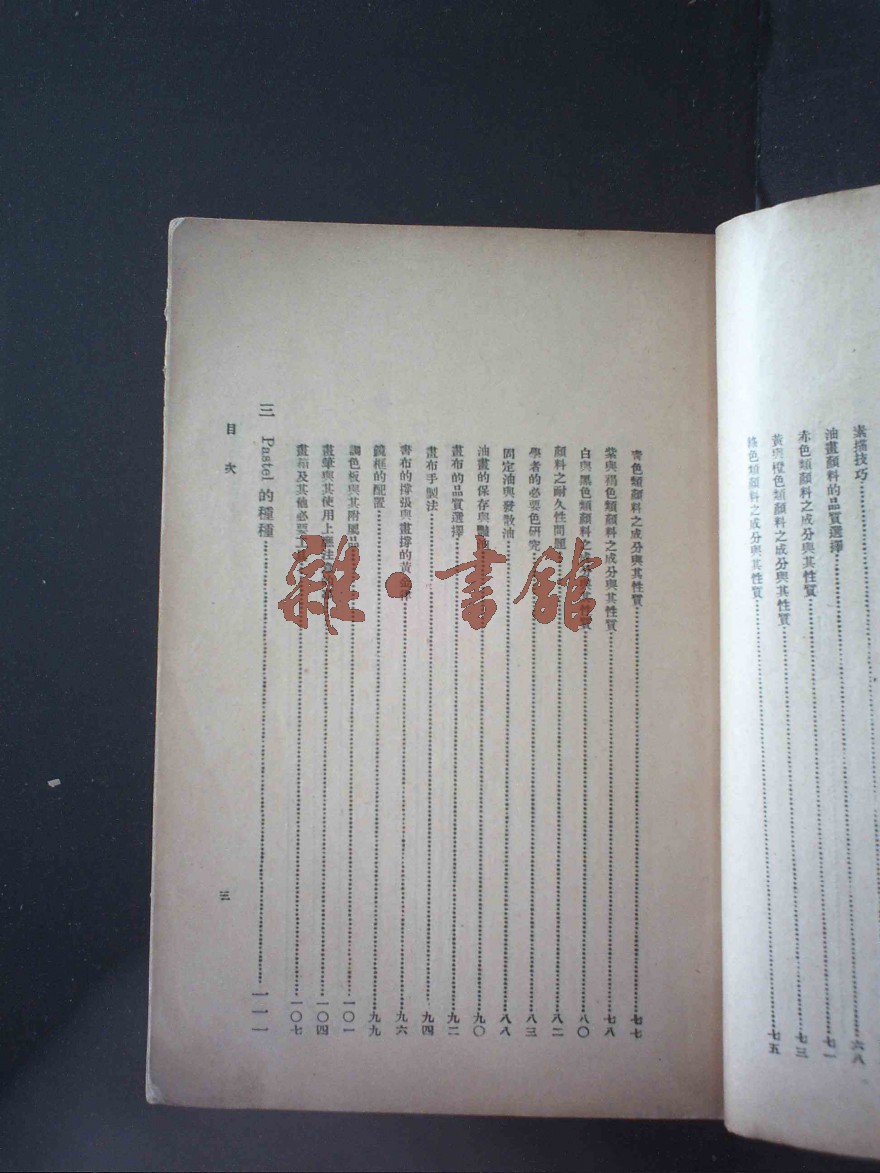 素描技巧……六八
油畫顏料的品質選擇……七一
赤色類顏料之成分與其性質……七三
黃與橙色類顏料之成分與其性質……七五
綠色類顏料之成分與其性質……
青色類顏料之成分與其性質……七七
紫與褐色類顏料之成分與其性質……七八
白與黑色類顏料之成分與其性質……八〇
顏料之耐久性問題……八二
學者的必要色研究……八三
固定油與發散油……八八
油畫的保存與……九〇
畫布的品質選擇……九二
畫布手製法……九四
畫布的撐張與畫撐的黃金律……九六
鏡框的配置……九九
調色板與其附屬品……一〇一
畫筆與其使用上應注意……一〇四
畫箱及其他必要……一〇七
三 Pastel 的種種……一一一
目次
三
雜·書館